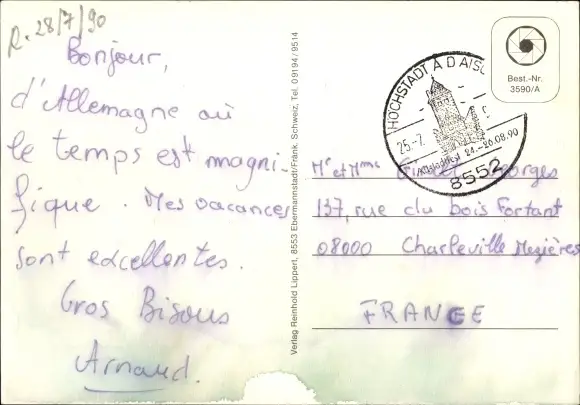 R. 28/7/90
Bonjour,
d'Allemagne où
le temps est magni-
fique. Mes vacances
sont excellentes.
Gros Bisous
Arnaud.
Verlag Reinhold Lippert, 8553 Ebermannstadt/Fränk. Schweiz, Tel. 09194/9514
Best.-Nr.
3590/A
HÖCHSTADT A D AISCH
25.-7.
Altstadtfest 24.-26.08.90
8552
Mr et Mme Georges
137, rue du bois Fortant
08000 Charleville Mezières
FRANCE